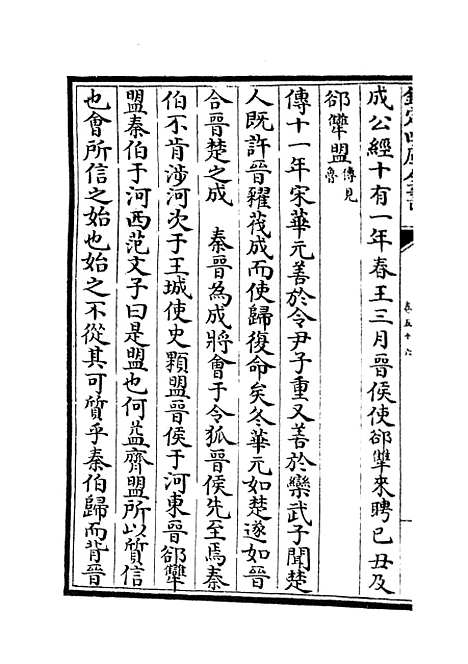 欽定四庫全書
卷五十六
成公經十有一年春王三月晉侯使郤犨來聘已丑及
郤犨盟傳見魯
傳十一年宋華元善於令尹子重又善於欒武子聞楚
人既許晉糴茷成而使歸復命矣冬華元如楚遂如晉
合晉楚之成　秦晉為成將會于令狐晉侯先至焉秦
伯不肯涉河次于王城使史顆盟晉侯于河東晉郤犨
盟秦伯于河西范文子曰是盟也何益齊盟所以質信
也會所信之始也始之不從其可質乎秦伯歸而背晉